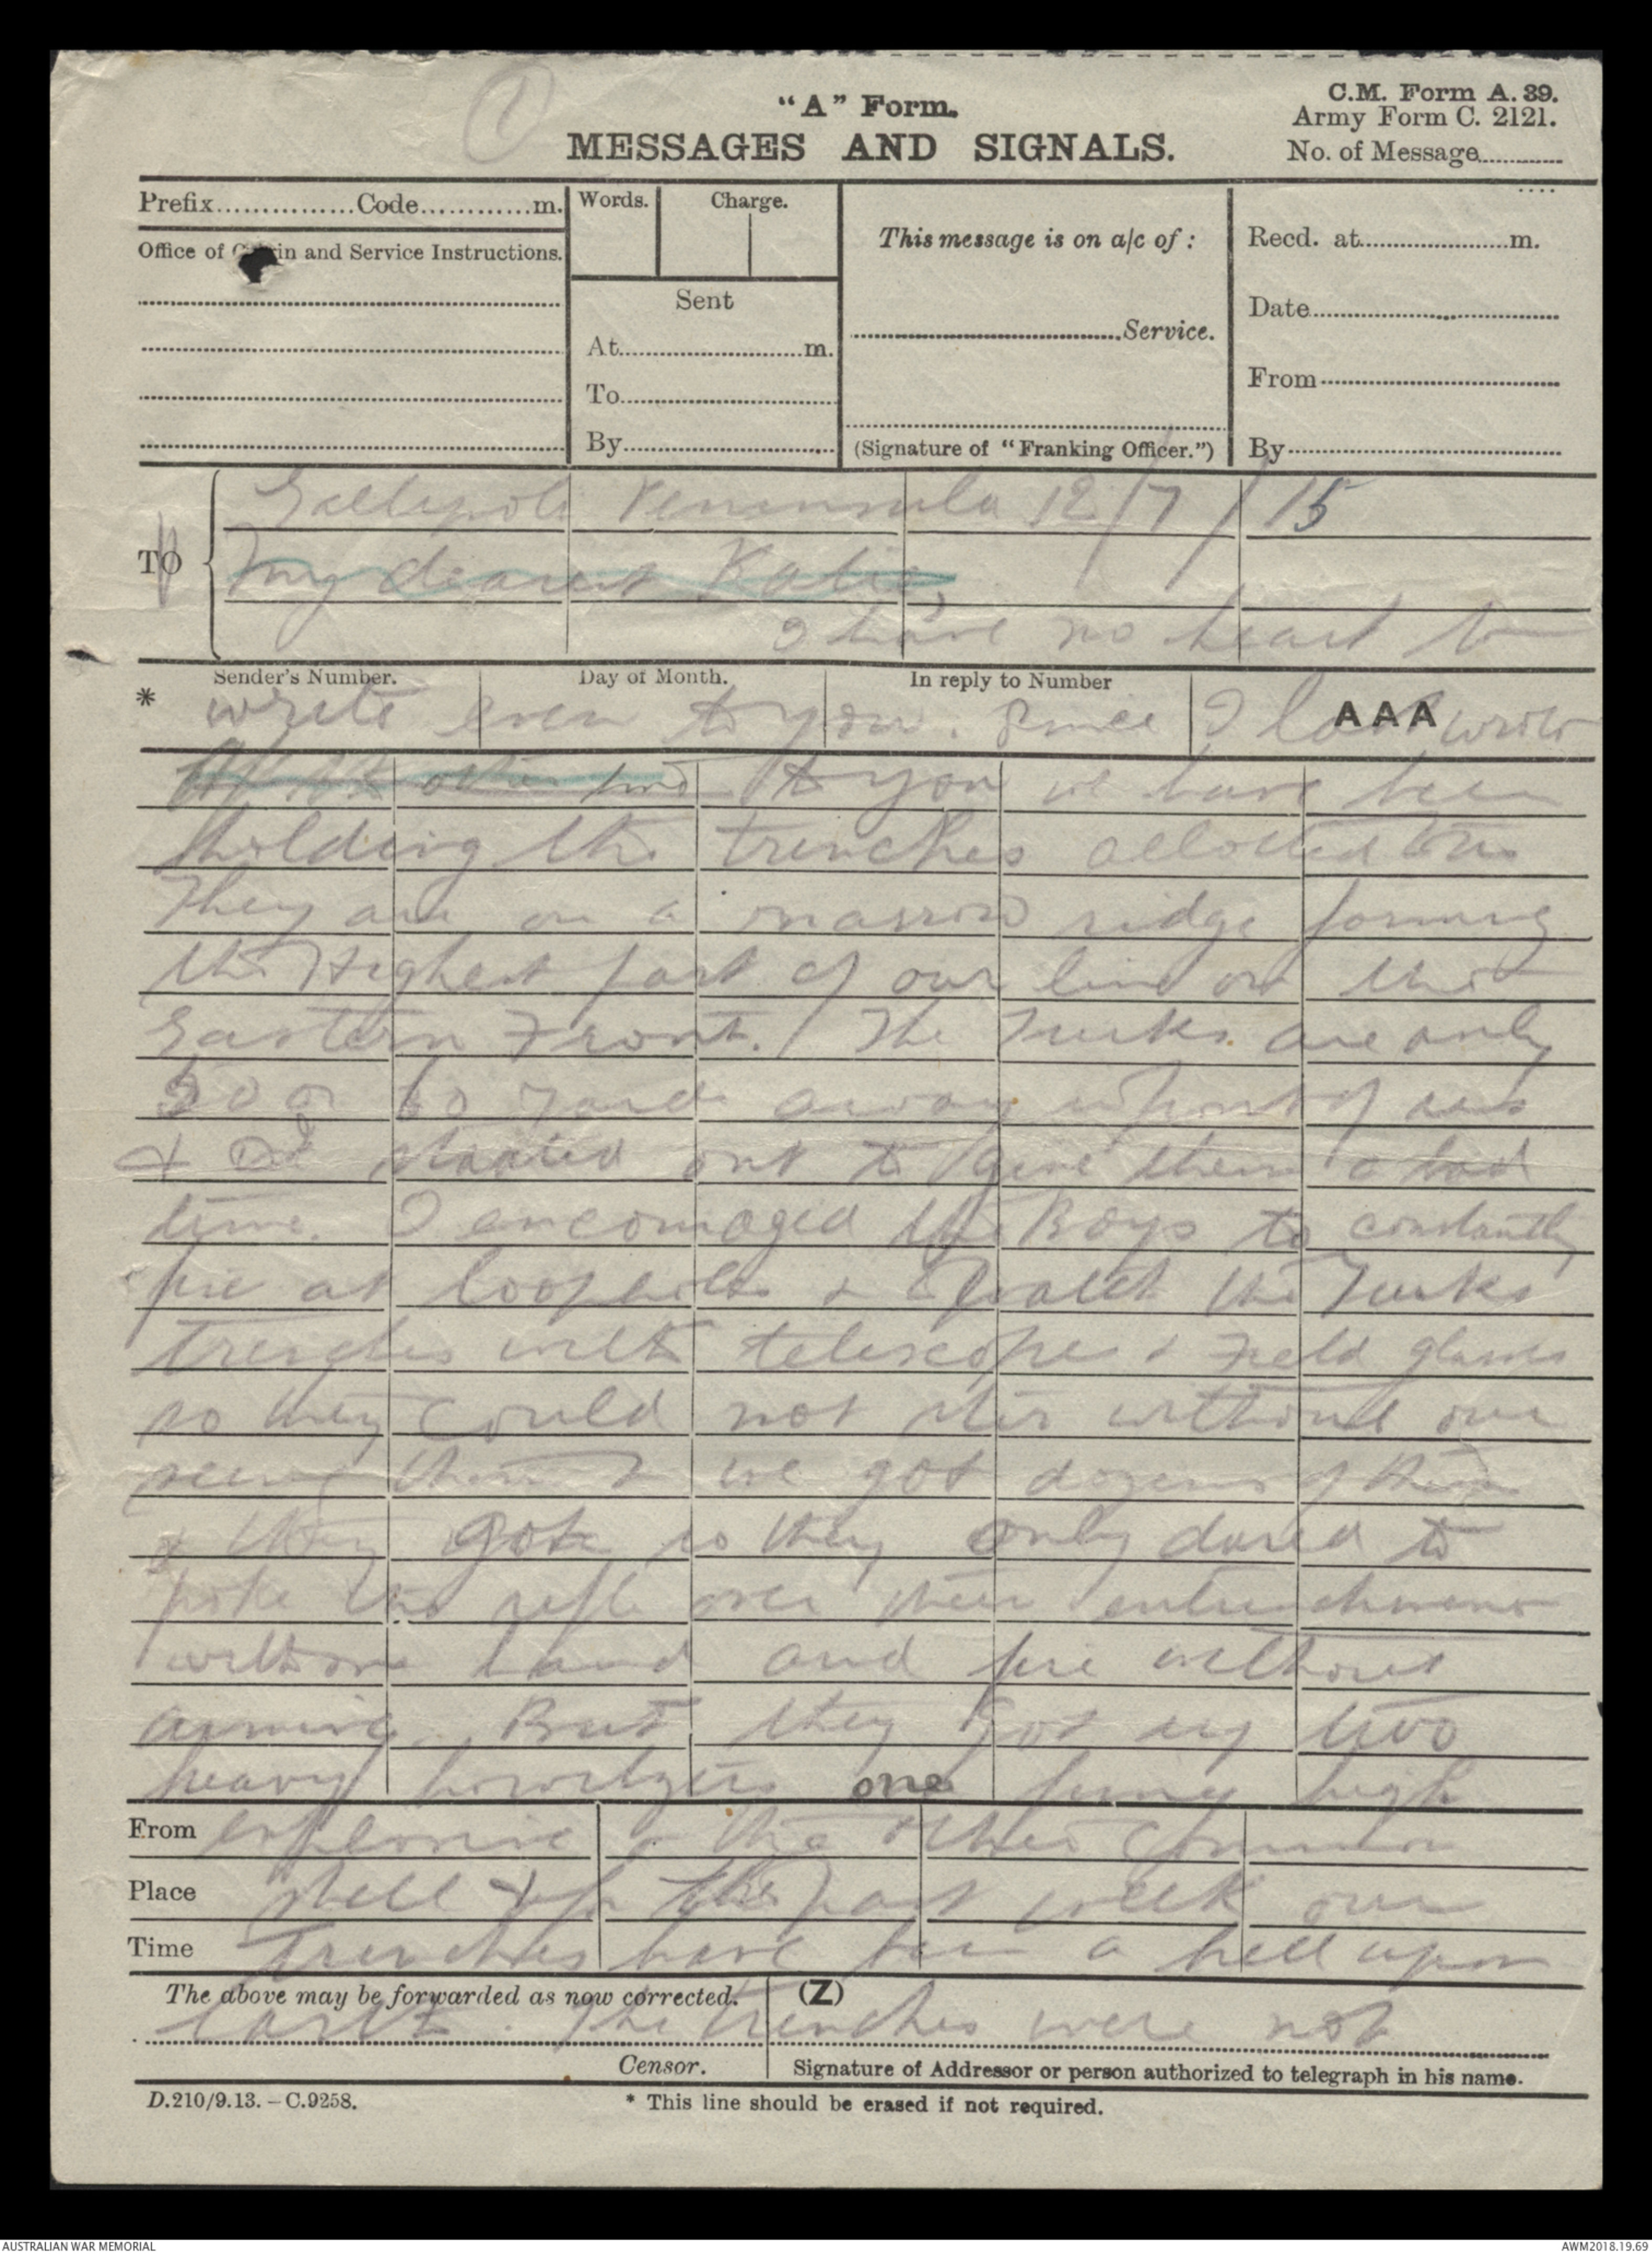 (1)
"A" Form.
MESSAGES AND SIGNALS.
C.M. Form A. 39.
Army Form C. 2121.
No. of Message............
Prefix...............Code............m.
Words.
Charge.
This message is on a/c of :
Recd. at....................m.
Office of in and Service Instructions.
Sent
Date
.Service.
At..........................m.
From
To
By
(Signature of "Franking Officer.")
By
Gallipoli Peninsula 12/7/15
TO
My dearest Katie,
I have no heart to
Sender's Number. Day of Month. In reply to Number AAA
* write even to you. Since I last wrote
to you we have been
holding the trenches allotted to us
They are on a narrow ridge forming
the Highest part of our line on the
Eastern Front. / The Turks are only
50 or 60 yards away in front of us
& we started out to give them a bad
time. I encouraged the Boys to constantly
fire at loopholes & watch the Turks
trenches with telescopes & Field glasses
so they could not stir without our
seeing them & we got dozens of them
& they got so they only dared to
poke the rifle over their entrenchments
with one hand and fire without
aiming. But they got up two
heavy howitzers one firing high
From explosive & the other common
Place shell & for the past week our
Time Trenches have been a hell upon
The above may be forwarded as now corrected. (Z)
earth. The trenches were not
Censor. Signature of Addressor or person authorized to telegraph in his name.
D.210/9.13. – C.9258.
* This line should be erased if not required.
AUSTRALIAN WAR MEMORIAL
AWM2018.19.69